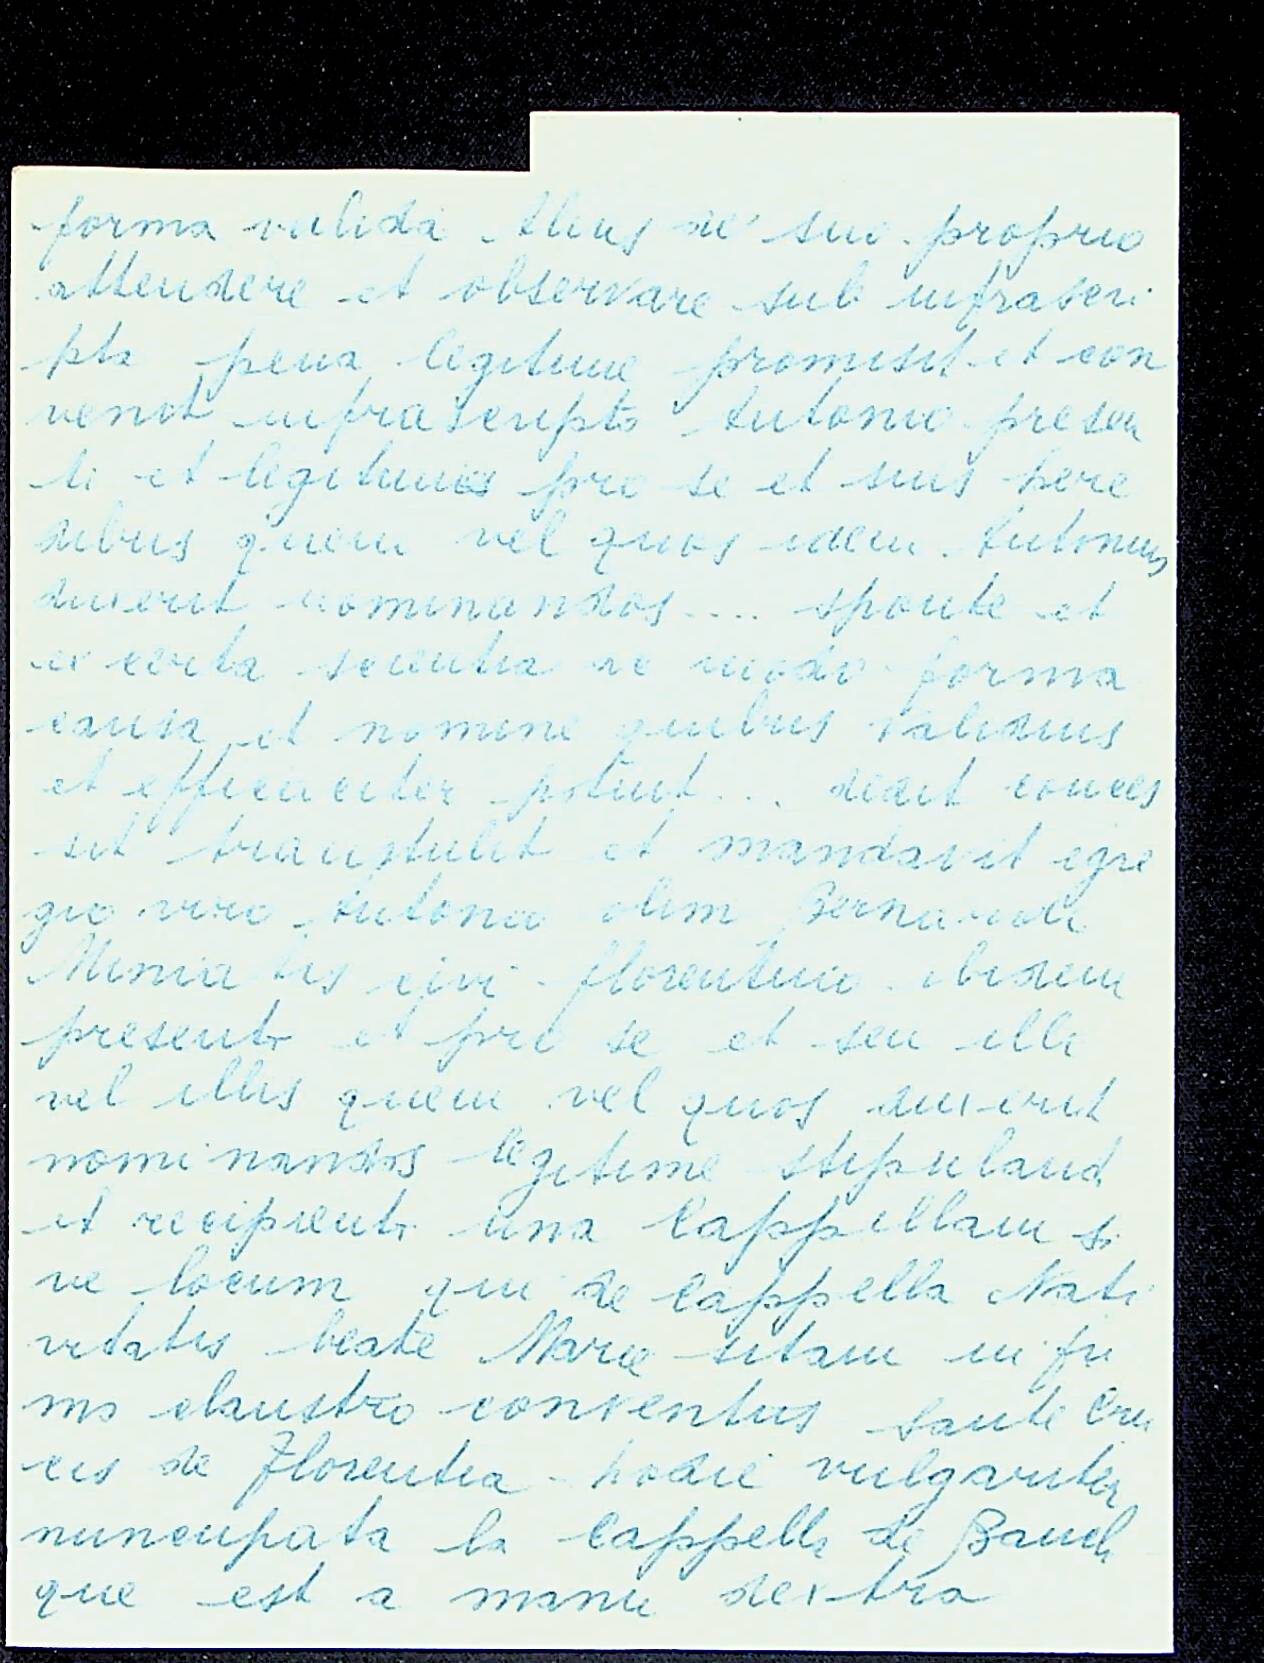 forma valida. Alius de suo proprio
attendere et observare sub infrascri
pta pena legitime promisit et con
venit infrascripto Antonio presen
ti et legitime pro se et suis here
dibus quem vel quos idem Antonius
duxerit nominandos .... sponte et
ex certa scientia ac modo forma
causa et nomine quibus validius
et efficaciter potuit ... dedit conces
sit transtulit et mandavit egre
gio viro Antonio olim Bernardi
Miniatis civi florentino ibidem
presenti et pro se et seu illi
vel illis quem vel quos duxerit
nominandos legitime stipulanti
et recipienti una Cappellam si
ve locum qui de Cappella Nati
vitatis beate Marie sitam in pri
mo claustro conventus Sante Cru
cis de Florentia hodie vulgariter
nuncupata la Cappella de
que est a manu dextra